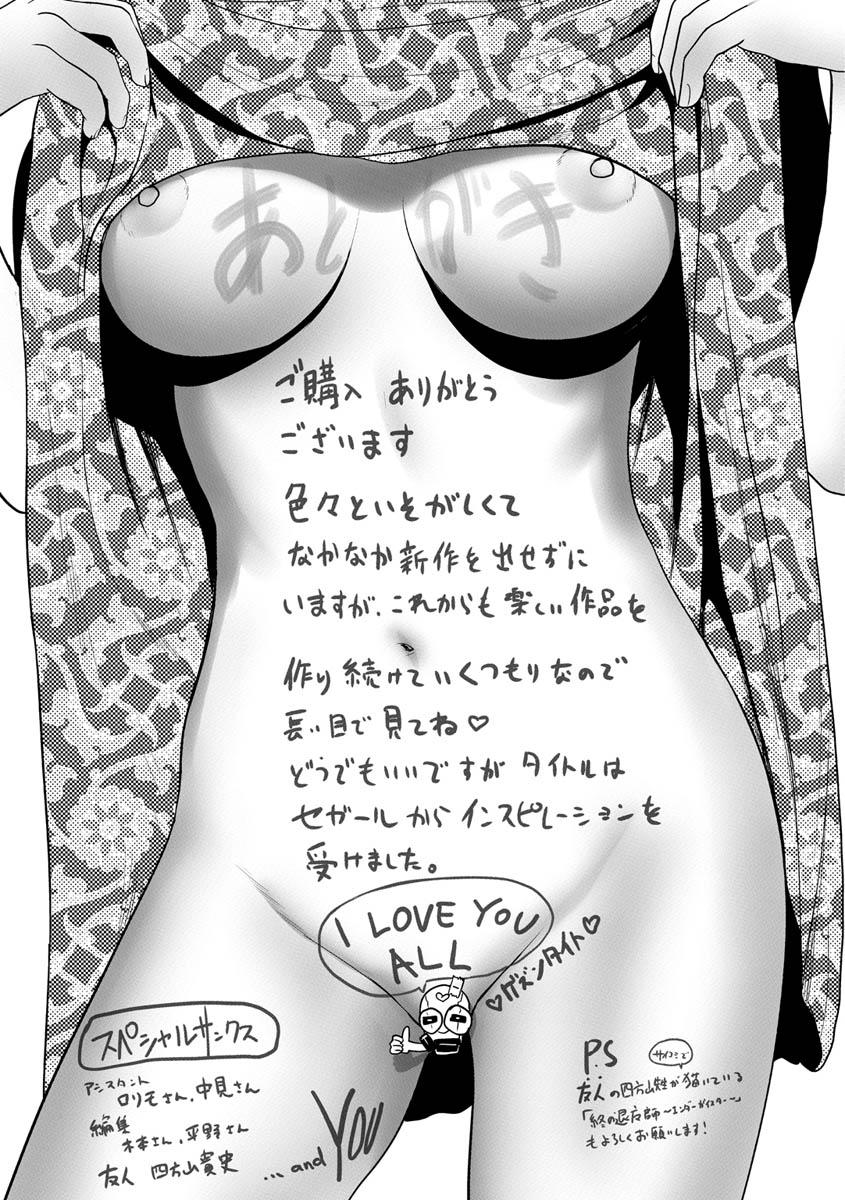 あとがき
ご購入 ありがとう
ございます
色々といそがしくて
なかなか新作を出せずに
いますが、これからも楽しい作品を
作り続けていくつもりなので
長い目で見てね♡
どうでもいいですが タイトルは
セガールから インスピレーションを
受けました。
I LOVE YOU
ALL
♡ゲズンタイト♡
スペシャルサンクス
アシスタント
ロリモさん、中見さん
編集
木本さん、平野さん
友人 四方山貴史
...and YOU
P.S
サイコミで
友人の四方山甡が描いている
「終の退魔師〜エンダーガイスター〜」
もよろしくお願いします!